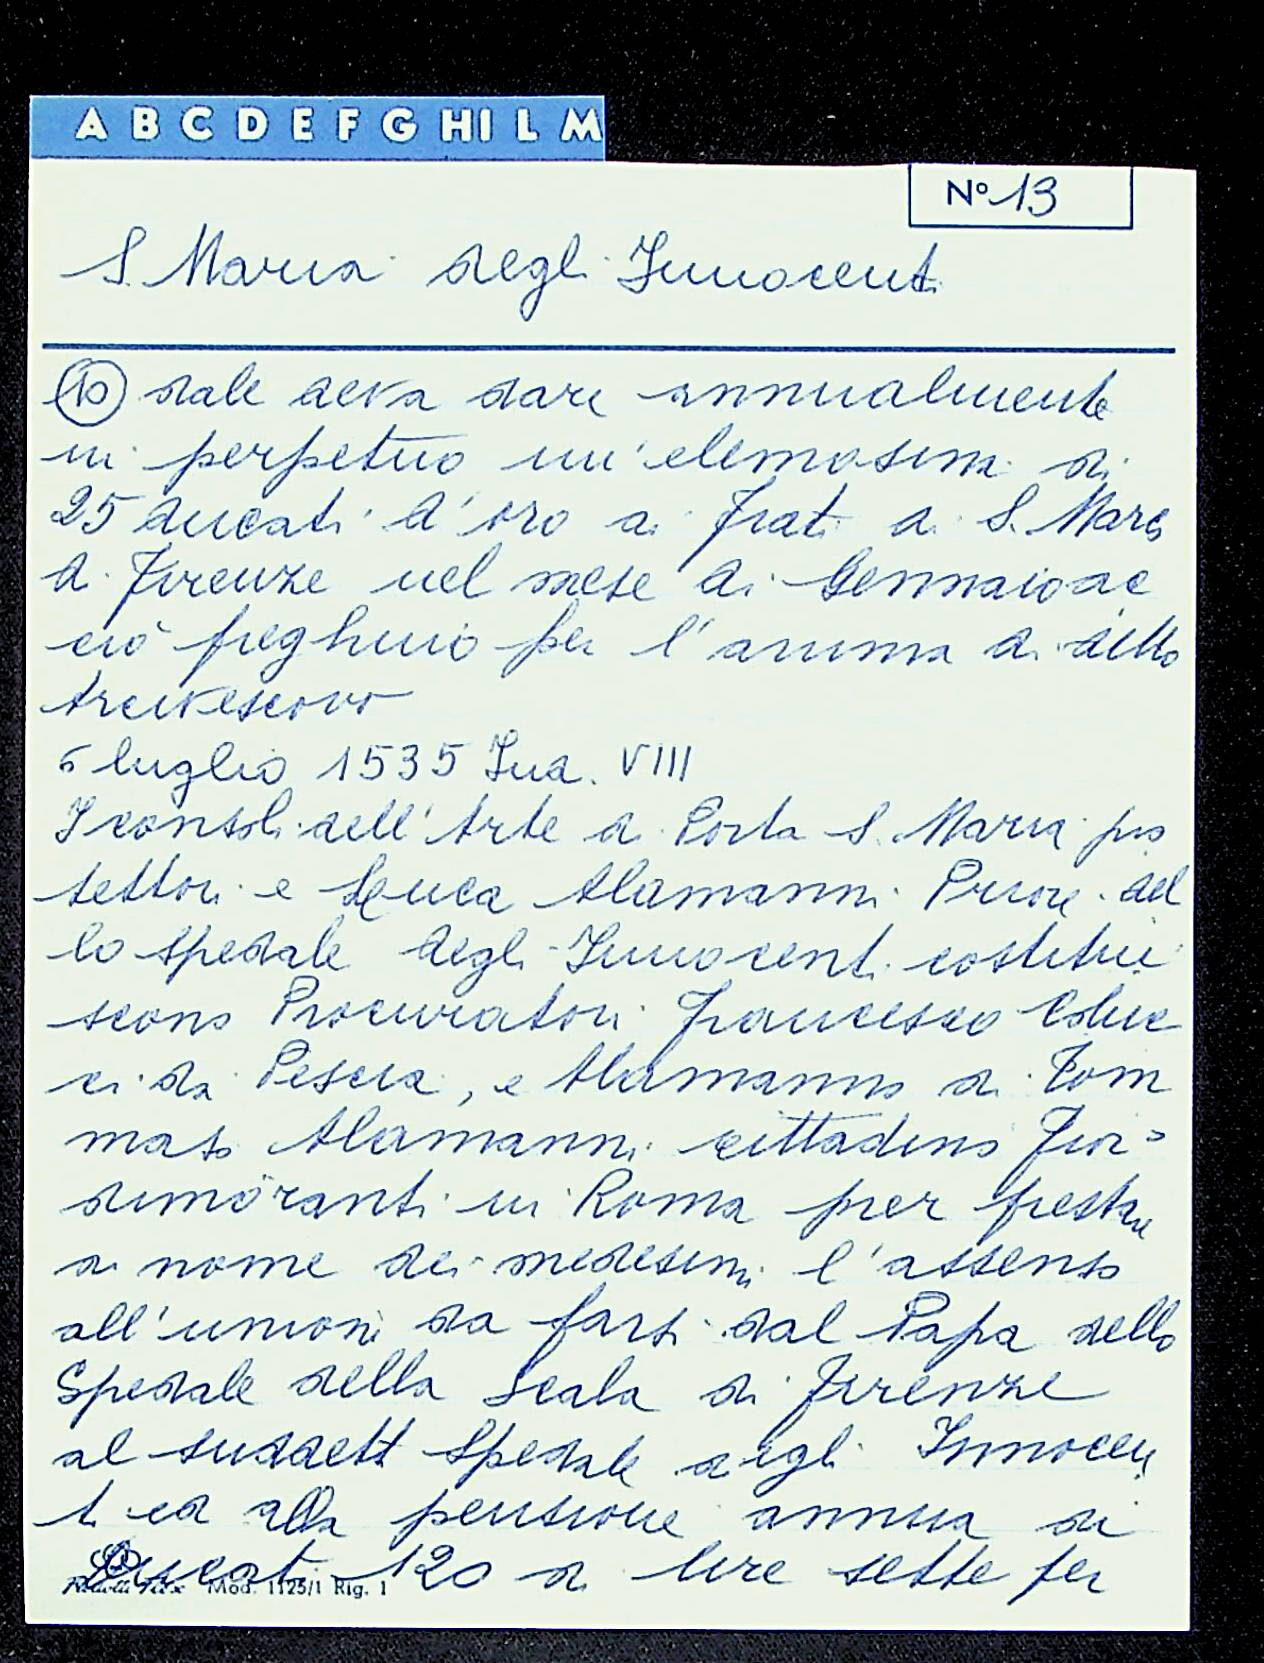 A B C D E F G HI L M
N° 13
S. Maria degli Innocenti
(10) dale deva dare annualmente
in perpetuo un'elemosina di
25 ducati d'oro ai frati di S. Marco
di Firenze nel mese di Gennaio ac
ciò preghino per l'anima di detto
Arcivescovo
5 luglio 1535 Ind. VIII
I consoli dell'Arte di Porta S. Maria pro
tettori e Luca Alamanni Priore del
lo spedale degli Innocenti costitui
scono Procuratori Francesco Coluc
ci da Pescia, e Alamanno di Tom
maso Alamanni cittadino Fior°
dimoranti in Roma per prestare
a nome dei medesimi l'assenso
all'unione da farsi dal Papa dello
Spedale della Scala di Firenze
al suddett Spedale degli Innocen
ti ed alla pensione annua di
Ducati 120 di lire sette per
Mod. 1125/1 Rig. 1